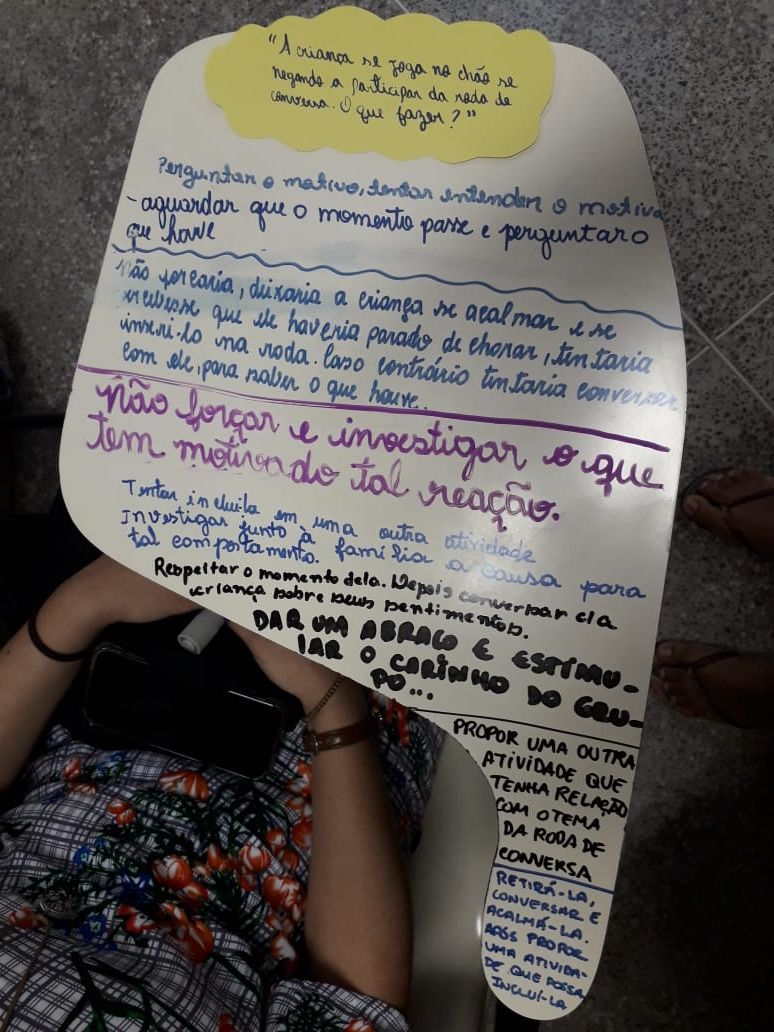 "A criança se joga no chão se
negando a participar da roda de
conversa. O que fazer?"
Perguntar o motivo, tentar entender o motivo
- aguardar que o momento passe e perguntar o
que houve
Não forçaria, deixaria a criança se acalmar e se
percebesse que ele haveria parado de chorar, tentaria
inseri-lo na roda. Caso contrário tentaria conversar
com ele, para saber o que houve.
Não forçar e investigar o que
tem motivado tal reação.
Tentar incluíla em uma outra atividade
Investigar junto à família a causa para
tal comportamento.
Respeitar o momento dela. Depois conversar c/a
criança sobre seus sentimentos.
DAR UM ABRAÇO E ESTIMU-
LAR O CARINHO DO GRU-
PO...
PROPOR UMA OUTRA
ATIVIDADE QUE
TENHA RELAÇÃO
COM O TEMA
DA RODA DE
CONVERSA
RETIRÁ-LA,
CONVERSAR E
ACALMÁ-LA.
APÓS PROPOR
UMA ATIVIDA-
DE QUE POSSA
INCLUÍ-LA